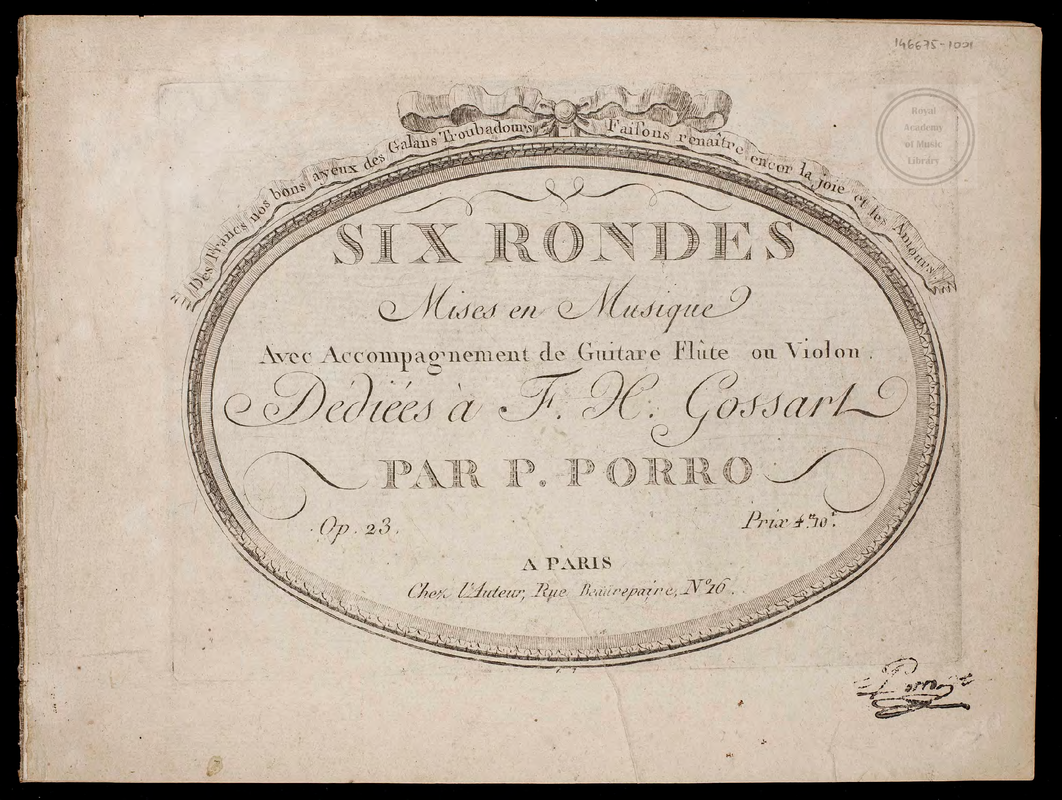 146675-1001
Royal
Academy
of Music
Library
Des Francs nos bons ayeux des Galans Troubadours Faisons renaître encor la joie et les Amours
SIX RONDES
Mises en Musique
Avec Accompagnement de Guitare Flûte ou Violon.
Dédiées à F. H. Gossart
PAR P. PORRO
Op. 23.
Prix 4.tt 10.s
A PARIS
Chez l'Auteur, Rue Beaurepaire, No. 16.
Porro